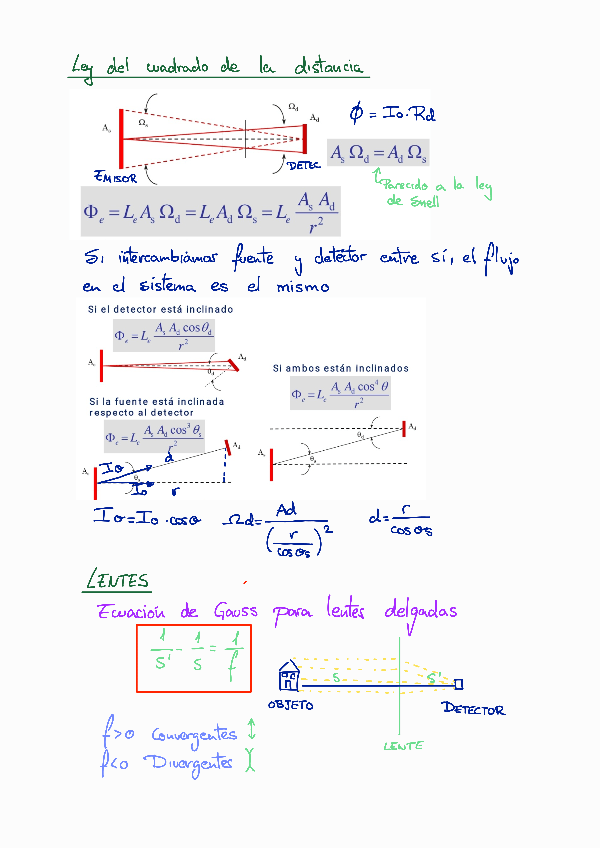 Ley del cuadrado de la distancia
Ωd
As Ωs Ad
EMISOR DETEC
ϕ = Io·Rd
As Ωd = Ad Ωs
Parecido a la ley
de Snell
Φe = Le As Ωd = Le Ad Ωs = Le As Ad / r²
Si intercambiamos fuente y detector entre sí, el flujo
en el sistema es el mismo
Si el detector está inclinado
Φe = Le As Ad cosθd / r²
As θd Ad
Si la fuente está inclinada
respecto al detector
Φe = Le As Ad cos³ θs / r²
d
As Iθ θs Ad
Io r
Si ambos están inclinados
Φe = Le As Ad cos⁴ θ / r²
Ad
θd
As θs
Iθ = Io · cosθ Ωd = Ad / (r / cosθs)² d = r / cosθs
LENTES
Ecuación de Gauss para lentes delgadas
1/s' - 1/s = 1/f
s s'
OBJETO DETECTOR
LENTE
f>0 Convergentes
f<0 Divergentes